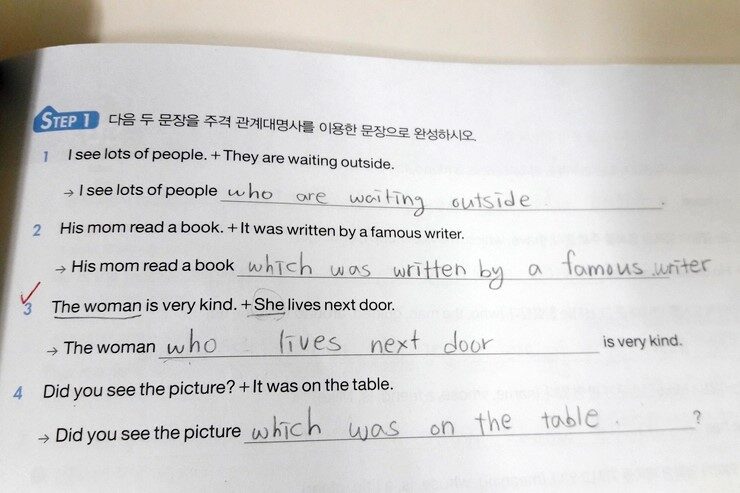 STEP 1 다음 두 문장을 주격 관계대명사를 이용한 문장으로 완성하시오.
1 I see lots of people. + They are waiting outside.
→ I see lots of people who are waiting outside .
2 His mom read a book. + It was written by a famous writer.
→ His mom read a book which was written by a famous writer
3 The woman is very kind. + She lives next door.
→ The woman who lives next door is very kind.
4 Did you see the picture? + It was on the table.
→ Did you see the picture which was on the table . ?